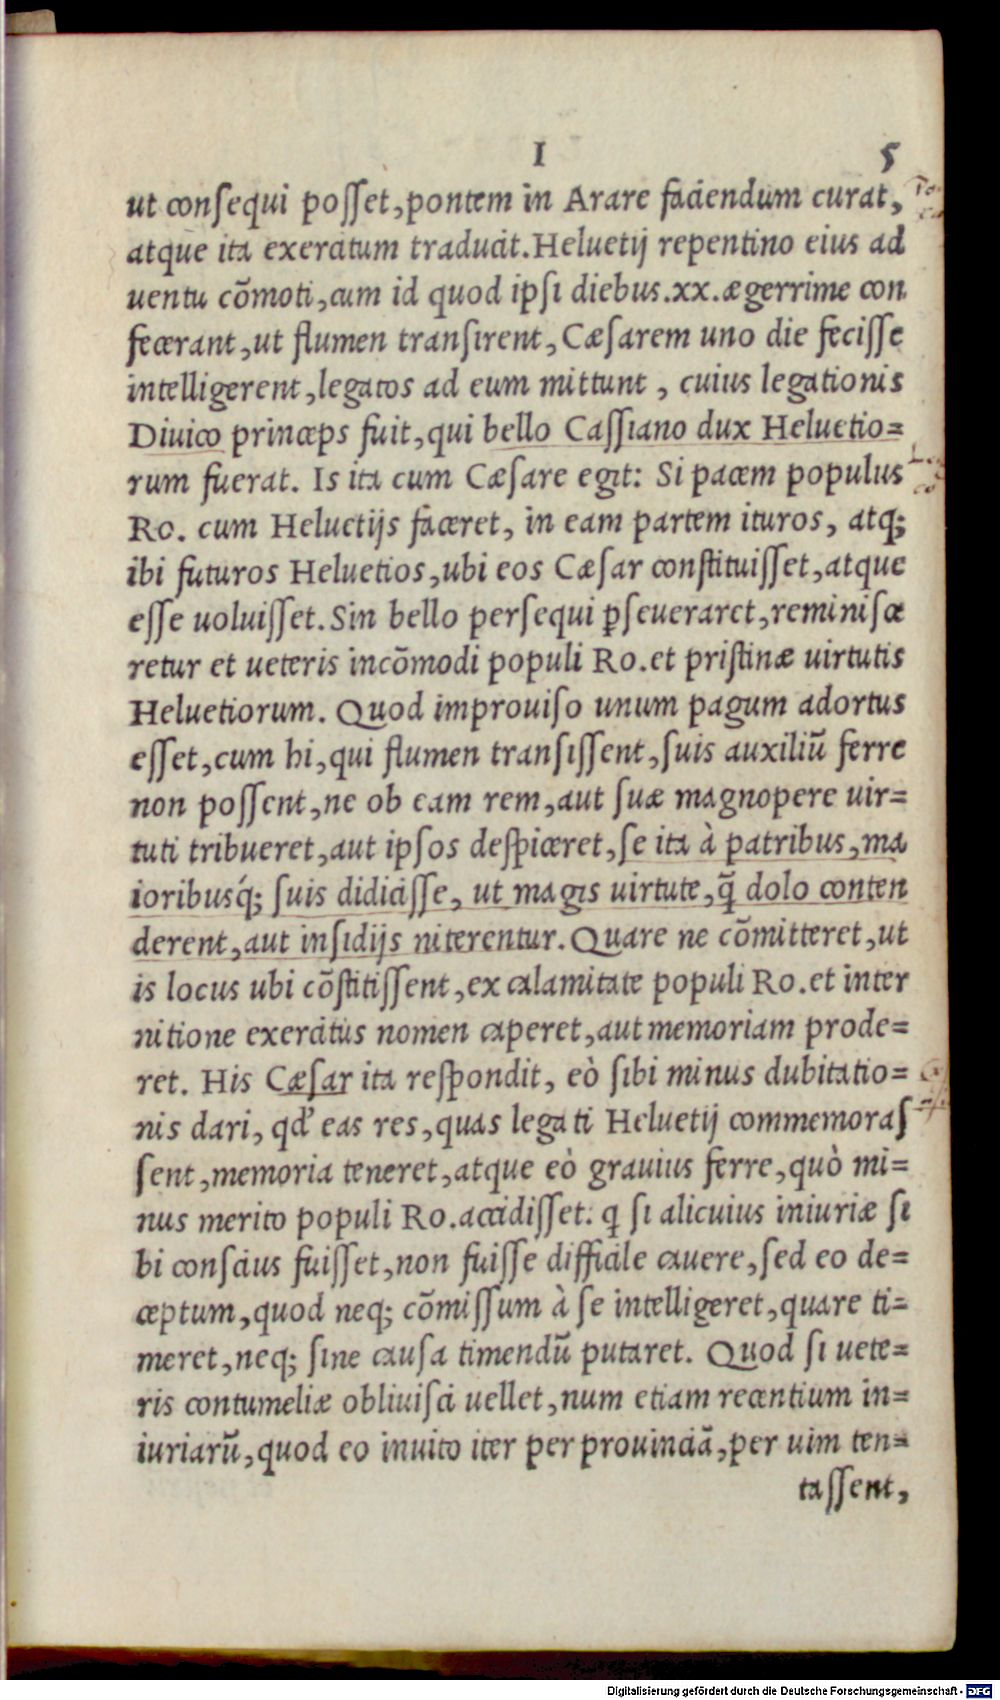 I 5
ut consequi posset, pontem in Arare faciendum curat,
atque ita exercitum traducit. Heluetij repentino eius ad
uentu cõmoti, cum id quod ipsi diebus .xx. ægerrime con
fecerant, ut flumen transirent, Cæsarem uno die fecisse
intelligerent, legatos ad eum mittunt, cuius legationis
Diuico princeps fuit, qui bello Cassiano dux Heluetio=
rum fuerat. Is ita cum Cæsare egit: Si pacem populus
Ro. cum Heluetijs faceret, in eam partem ituros, atq;
ibi futuros Heluetios, ubi eos Cæsar constituisset, atque
esse uoluisset. Sin bello persequi ꝑseueraret, reminisce
retur et ueteris incõmodi populi Ro. et pristinæ uirtutis
Heluetiorum. Quod improuiso unum pagum adortus
esset, cum hi, qui flumen transissent, suis auxiliũ ferre
non possent, ne ob eam rem, aut suæ magnopere uir=
tuti tribueret, aut ipsos despiceret, se ita à patribus, ma
ioribusq́; suis didicisse, ut magis uirtute, q̃ dolo conten
derent, aut insidijs niterentur. Quare ne cõmitteret, ut
is locus ubi cõstitissent, ex calamitate populi Ro. et inter
nitione exercitus nomen caperet, aut memoriam prode=
ret. His Cæsar ita respondit, eò sibi minus dubitatio=
nis dari, qd' eas res, quas legati Heluetij commemoras
sent, memoria teneret, atque eò grauius ferre, quò mi=
nus merito populi Ro. accidisset. q si alicuius iniuriæ si
bi conscius fuisset, non fuisse difficile cauere, sed eo de=
ceptum, quod neq; cõmissum à se intelligeret, quare ti=
meret, neq; sine causa timendũ putaret. Quod si uete=
ris contumeliæ obliuisci uellet, num etiam recentium in=
iuriarũ, quod eo inuito iter per prouinciã, per uim ten=
tassent,
Digitalisierung gefördert durch die Deutsche Forschungsgemeinschaft - DFG